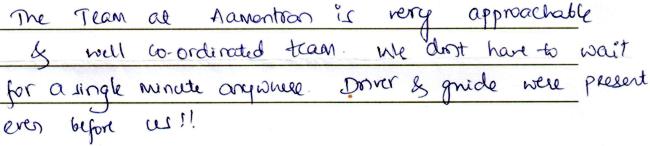 The Team at Aamantran is very approachable
& well co-ordinated team. We don't have to wait
for a single minute anywhere. Driver & guide were present
even before us!!